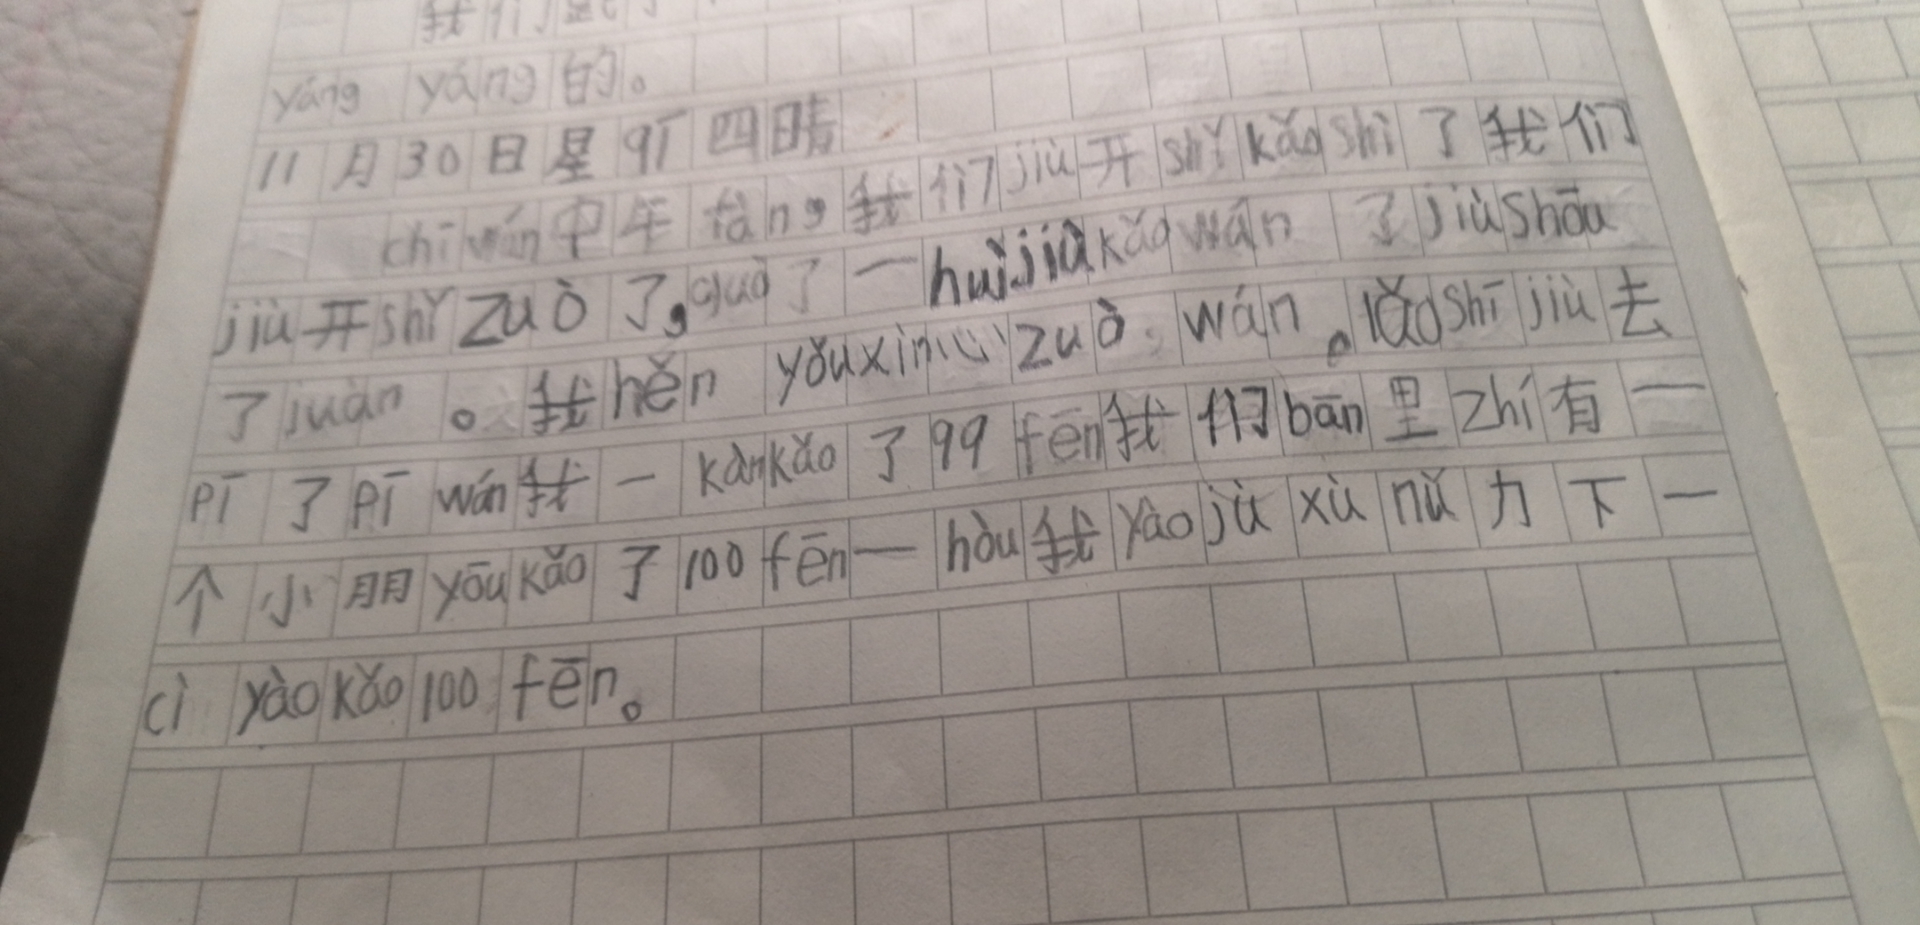 我们
yáng yáng 的。
11月30日星歹四晴
chī wán 中午 fàn，我们 jiù 开 shǐ kǎo shì 了我们
jiù 开 shǐ zuò 了，guò 了一 huì jiù kǎo wán 了 jiù shōu
了 juàn 。我 hěn yǒu xìn 心 zuò wán 。lǎo shī jiù 去
pī 了 pī wán 我一 kàn kǎo 了 99 fēn 我们 bān 里 zhí 有一
个小朋 yōu kǎo 了 100 fēn 一 hòu 我 yào jù xù nǔ 力下一
cì yào kǎo 100 fēn。